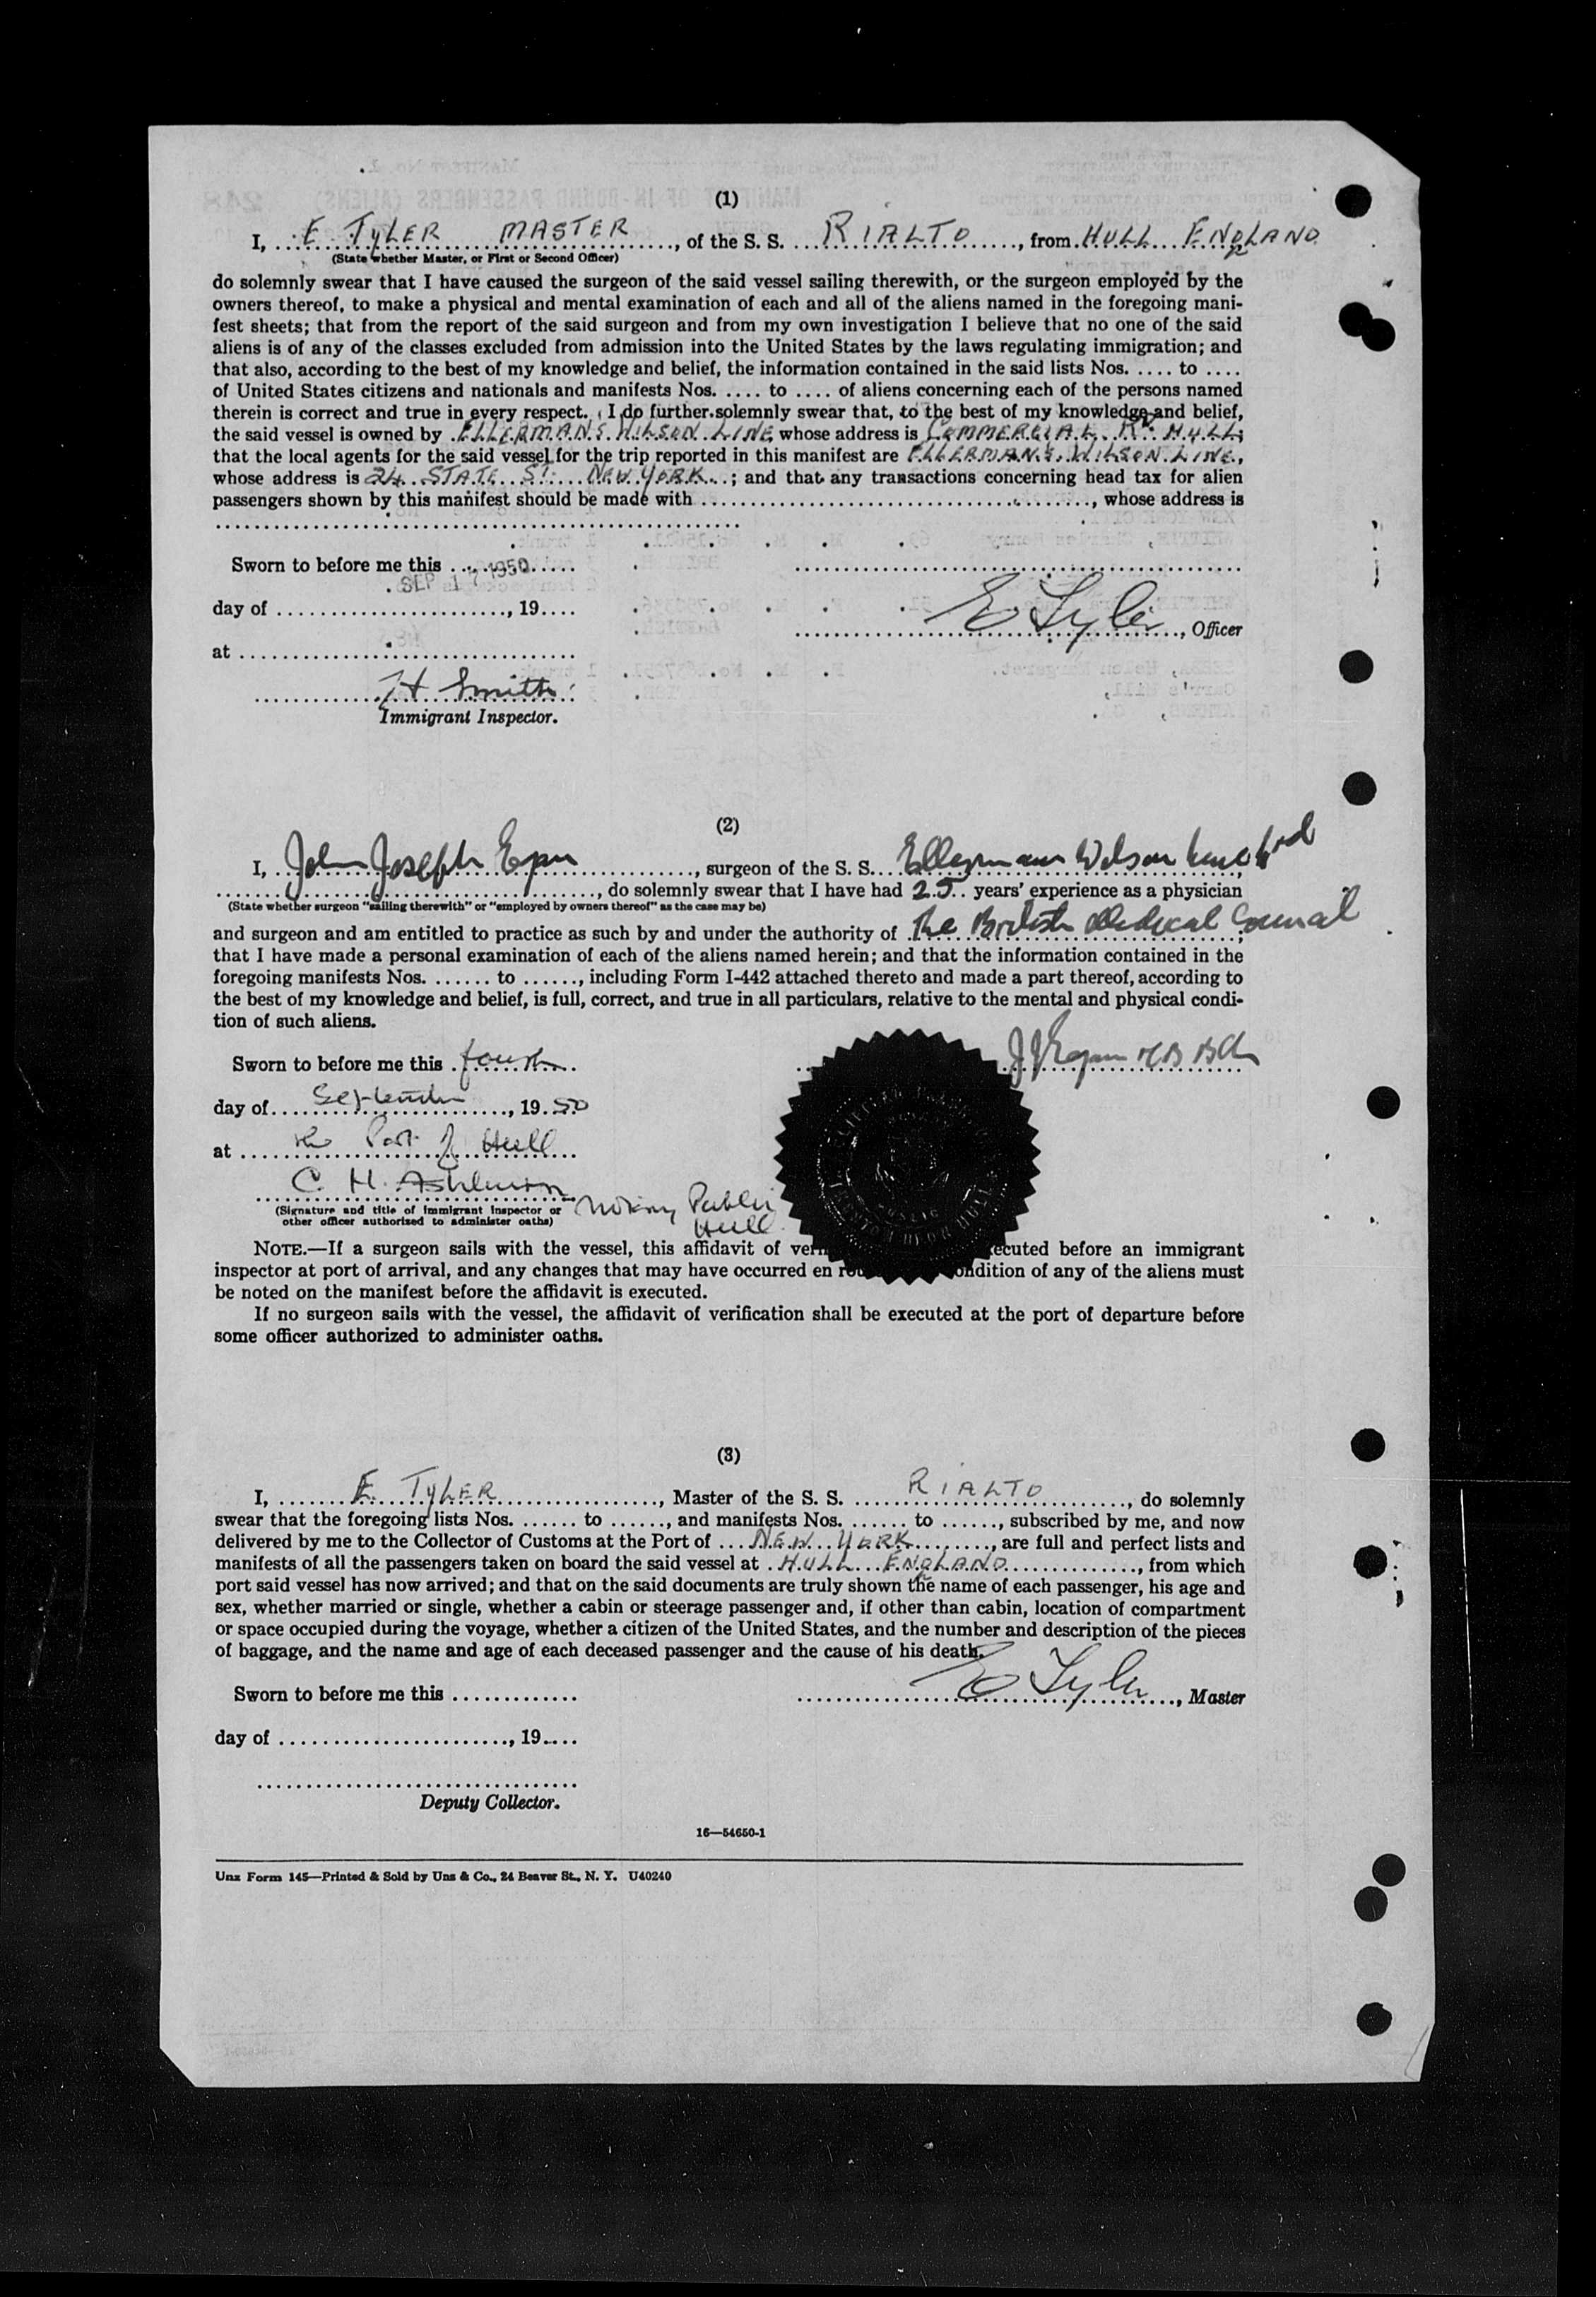 (1)
I, E. TYLER MASTER, of the S. S. RIALTO, from HULL ENGLAND
(State whether Master, or First or Second Officer)
do solemnly swear that I have caused the surgeon of the said vessel sailing therewith, or the surgeon employed by the
owners thereof, to make a physical and mental examination of each and all of the aliens named in the foregoing mani-
fest sheets; that from the report of the said surgeon and from my own investigation I believe that no one of the said
aliens is of any of the classes excluded from admission into the United States by the laws regulating immigration; and
that also, according to the best of my knowledge and belief, the information contained in the said lists Nos. .... to ....
of United States citizens and nationals and manifests Nos. .... to .... of aliens concerning each of the persons named
therein is correct and true in every respect. I do further solemnly swear that, to the best of my knowledge and belief,
the said vessel is owned by ELLERMANS WILSON LINE whose address is COMMERCIAL RD HULL;
that the local agents for the said vessel for the trip reported in this manifest are ELLERMANS WILSON LINE,
whose address is 24 STATE ST. NEW YORK; and that any transactions concerning head tax for alien
passengers shown by this manifest should be made with ...................., whose address is
Sworn to before me this ..............
SEP 17 1950
day of ........................, 19....
E Tyler, Officer
at ..................................
H Smith
Immigrant Inspector.
(2)
I, John Joseph Egan, surgeon of the S. S. Ellerman Wilson Line Ltd
...................., do solemnly swear that I have had 25 years' experience as a physician
(State whether surgeon "sailing therewith" or "employed by owners thereof" as the case may be)
and surgeon and am entitled to practice as such by and under the authority of The British Medical Council;
that I have made a personal examination of each of the aliens named herein; and that the information contained in the
foregoing manifests Nos. ...... to ......, including Form I-442 attached thereto and made a part thereof, according to
the best of my knowledge and belief, is full, correct, and true in all particulars, relative to the mental and physical condi-
tion of such aliens.
J J Egan MB BCh
Sworn to before me this fourth
day of September, 1950
at the Port of Hull
C. H.
Notary Public
(Signature and title of immigrant inspector or
other officer authorized to administer oaths)
Hull
NOTE.—If a surgeon sails with the vessel, this affidavit of veri ecuted before an immigrant
inspector at port of arrival, and any changes that may have occurred en ondition of any of the aliens must
be noted on the manifest before the affidavit is executed.
If no surgeon sails with the vessel, the affidavit of verification shall be executed at the port of departure before
some officer authorized to administer oaths.
(3)
I, E. TYLER, Master of the S. S. RIALTO, do solemnly
swear that the foregoing lists Nos. ....... to ......, and manifests Nos. ....... to ......, subscribed by me, and now
delivered by me to the Collector of Customs at the Port of NEW YORK, are full and perfect lists and
manifests of all the passengers taken on board the said vessel at HULL ENGLAND, from which
port said vessel has now arrived; and that on the said documents are truly shown the name of each passenger, his age and
sex, whether married or single, whether a cabin or steerage passenger and, if other than cabin, location of compartment
or space occupied during the voyage, whether a citizen of the United States, and the number and description of the pieces
of baggage, and the name and age of each deceased passenger and the cause of his death.
Sworn to before me this .............
E Tyler, Master
day of ........................, 19....
Deputy Collector.
16—54650-1
Unz Form 145—Printed & Sold by Unz & Co., 24 Beaver St., N. Y. U40240